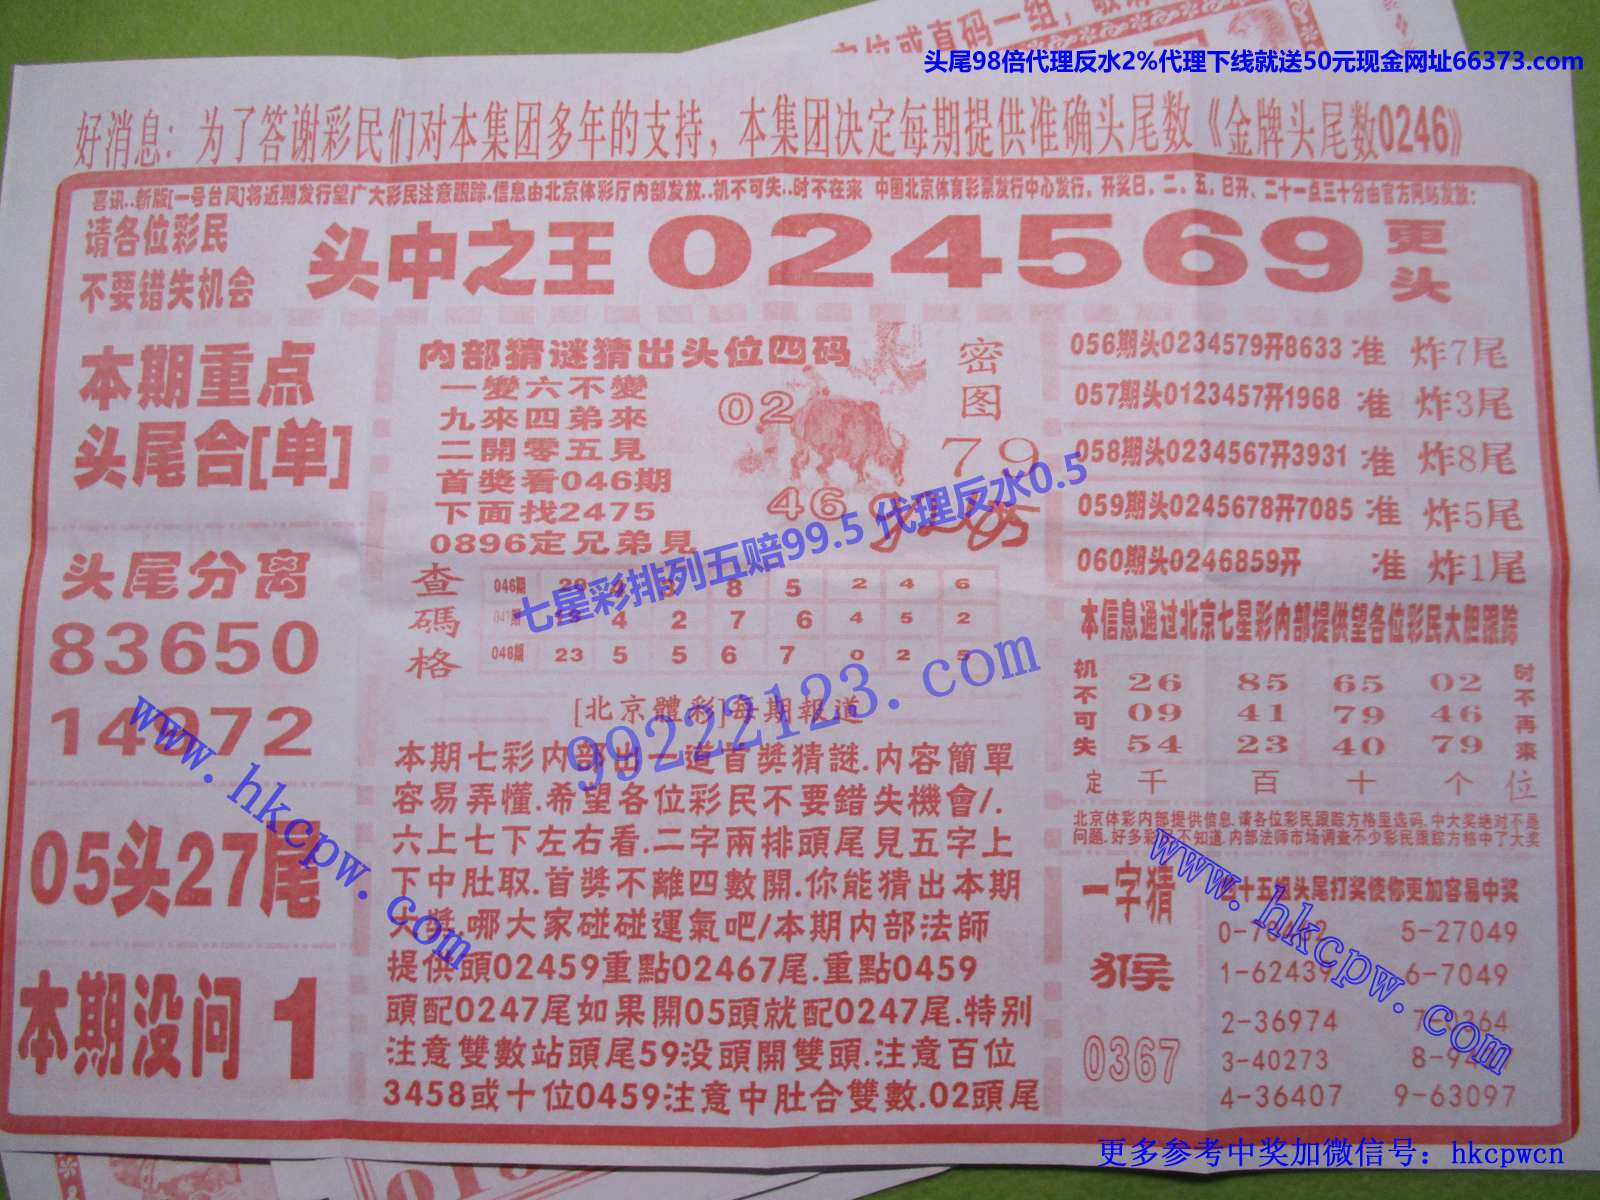 定位或直码一组，
头尾98倍代理反水2%代理下线就送50元现金网址66373.com
好消息：为了答谢彩民们对本集团多年的支持，本集团决定每期提供准确头尾数《金牌头尾数0246》
喜讯..新版[一号台风]将近期发行望广大彩民注意跟踪.信息由北京体彩厅内部发放..机不可失..时不在来 中国北京体育彩票发行中心发行，开奖日，二、五，日开、二十一点三十分由官方网站发放：
请各位彩民
不要错失机会
头中之王024569更头
本期重点
头尾合[单]
头尾分离
83650
14972
05头27尾
本期没问1
内部猜谜猜出头位四码
一變六不變
九來四弟來
二開零五見
首獎看046期
下面找2475
0896定兄弟見
密图
02
79
46
查碼格
046期 2 4 6
8 5
4 2 7 6 4 5 2
048期 23 5 5 6 7 0 2 5
七星彩排列五赔99.5 代理反水0.5
99222123.com
[北京體彩]每期報道
本期七彩内部出一道首獎猜謎.内容簡單
容易弄懂.希望各位彩民不要錯失機會/.
六上七下左右看.二字兩排頭尾見五字上
下中肚取.首獎不離四數開.你能猜出本期
大獎.哪大家碰碰運氣吧/本期内部法師
提供頭02459重點02467尾.重點0459
頭配0247尾如果開05頭就配0247尾.特别
注意雙數站頭尾59没頭開雙頭.注意百位
3458或十位0459注意中肚合雙數.02頭尾
056期头0234579开8633 准 炸7尾
057期头0123457开1968 准 炸3尾
058期头0234567开3931 准 炸8尾
059期头0245678开7085 准 炸5尾
060期头0246859开 准 炸1尾
本信息通过北京七星彩内部提供望各位彩民大胆跟踪
机不可失
26 85 65 02
09 41 79 46
54 23 40 79
时不再来
定 千 百 十 个 位
北京体彩内部提供信息.请各位彩民跟踪方格里选码.中大奖绝对不是
问题.好多彩民不知道.内部法师市场调查不少彩民跟踪方格中了大奖
一字猜
猴
0367
十五组头尾打奖使你更加容易中奖
5-27049
1-62439 6-7049
2-36974
3-40273
4-36407 9-63097
www.hkcpw.com
www.hkcpw.com
更多参考中奖加微信号：hkcpwcn